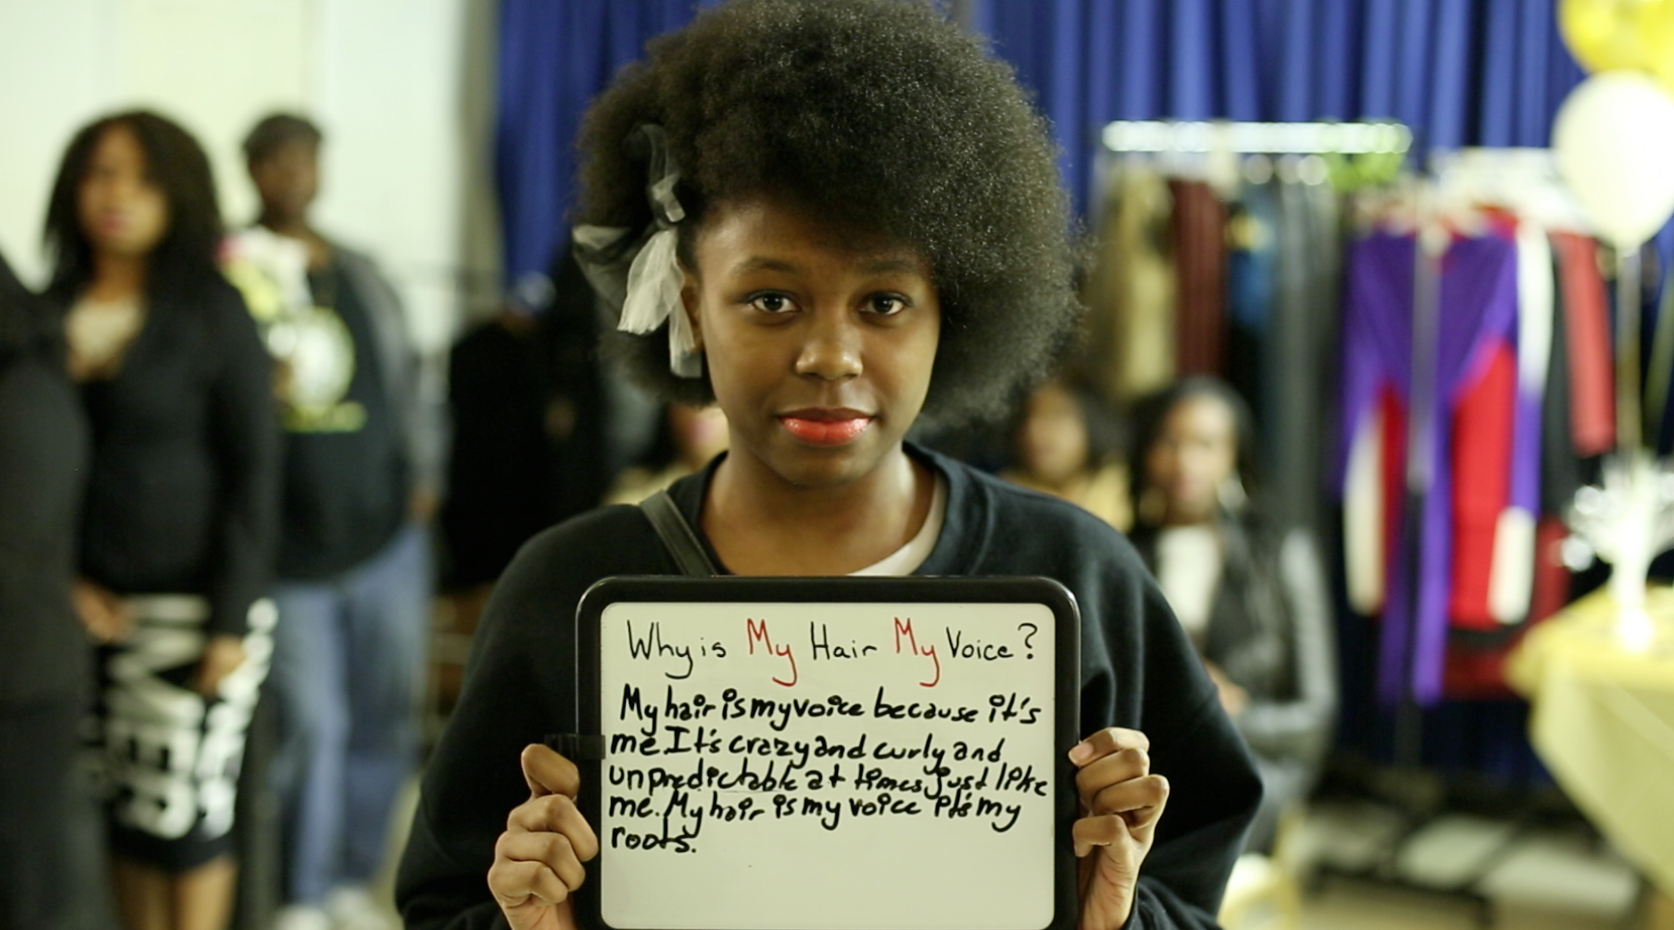 Why is My Hair My Voice?
My hair is my voice because it's
me. It's crazy and curly and
unpredictable at times just like
me. My hair is my voice it's my
roots.